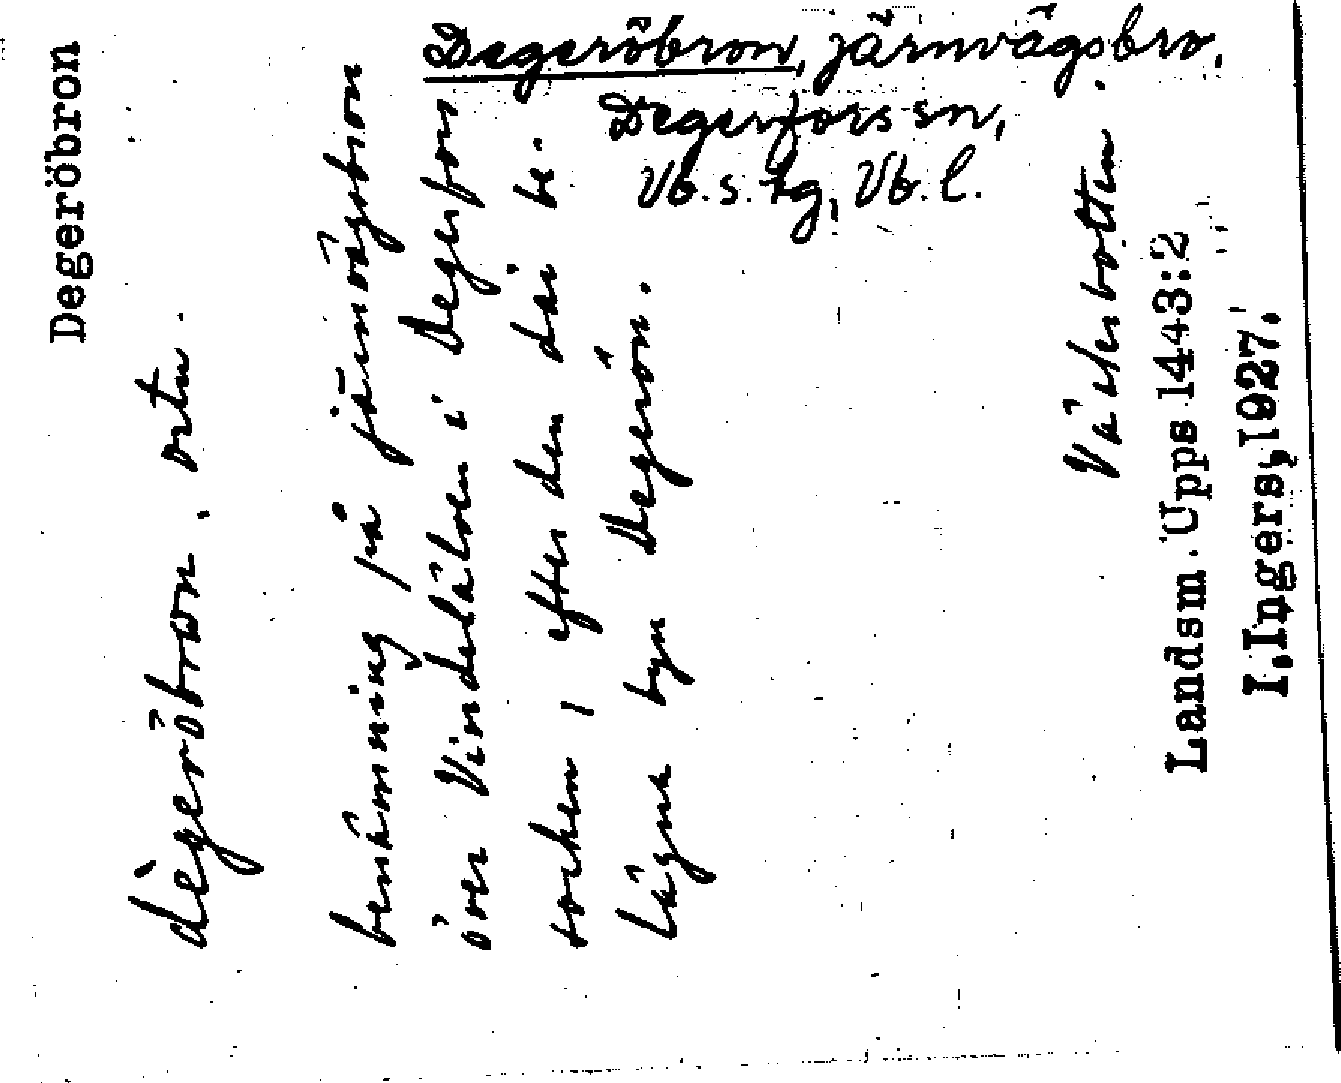 Degeröbron, järnvägsbro,
Degerfors sn,
Vb. s. tg, Vb. l.
Degeröbron
dègeröbron, ortn.
benämning på järnvägsbron
över Vindelälven i Degerfors
socken, efter den där be-
lägna byn Degerön.
Västerbotten
Landsm. Upps 1443:2
I. Ingers, 1927.